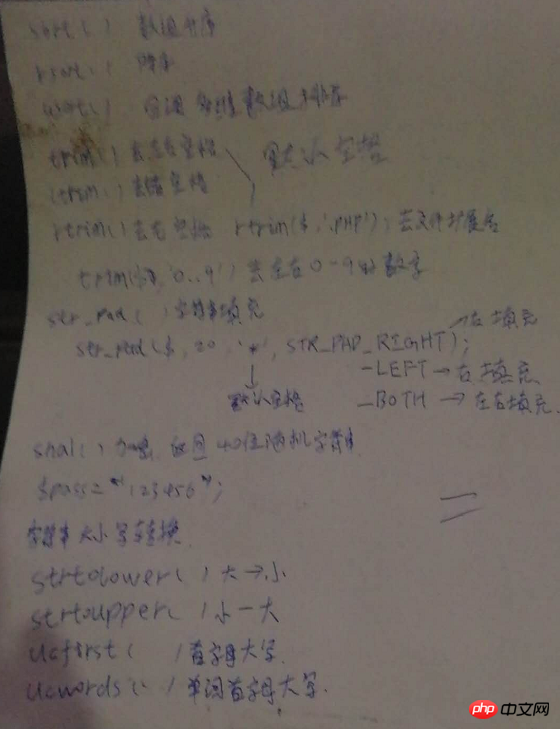 sort() 数组升序
rsort() 降序
usort() 多维数组排序
trim() 去左右空格 默认空格
ltrim() 去左空格
rtrim() 去右空格 rtrim($,'.PHP'); 去文件扩展名
trim($, '0..9') 去左右0-9的数字
str_pad( ) 字符串填充
→右填充
str_pad($, 20, '*', STR_PAD_RIGHT);
-LEFT → 右填充
默认空格 _BOTH → 左右填充
sha1() 加密 返回40位随机字符串
$pass="123456";
字符串大小写转换
strtolower( ) 大→小
strtoupper( ) 小一大
ucfirst( ) 首字母大写.
ucwords() 单词首字母大写.
php 中文网